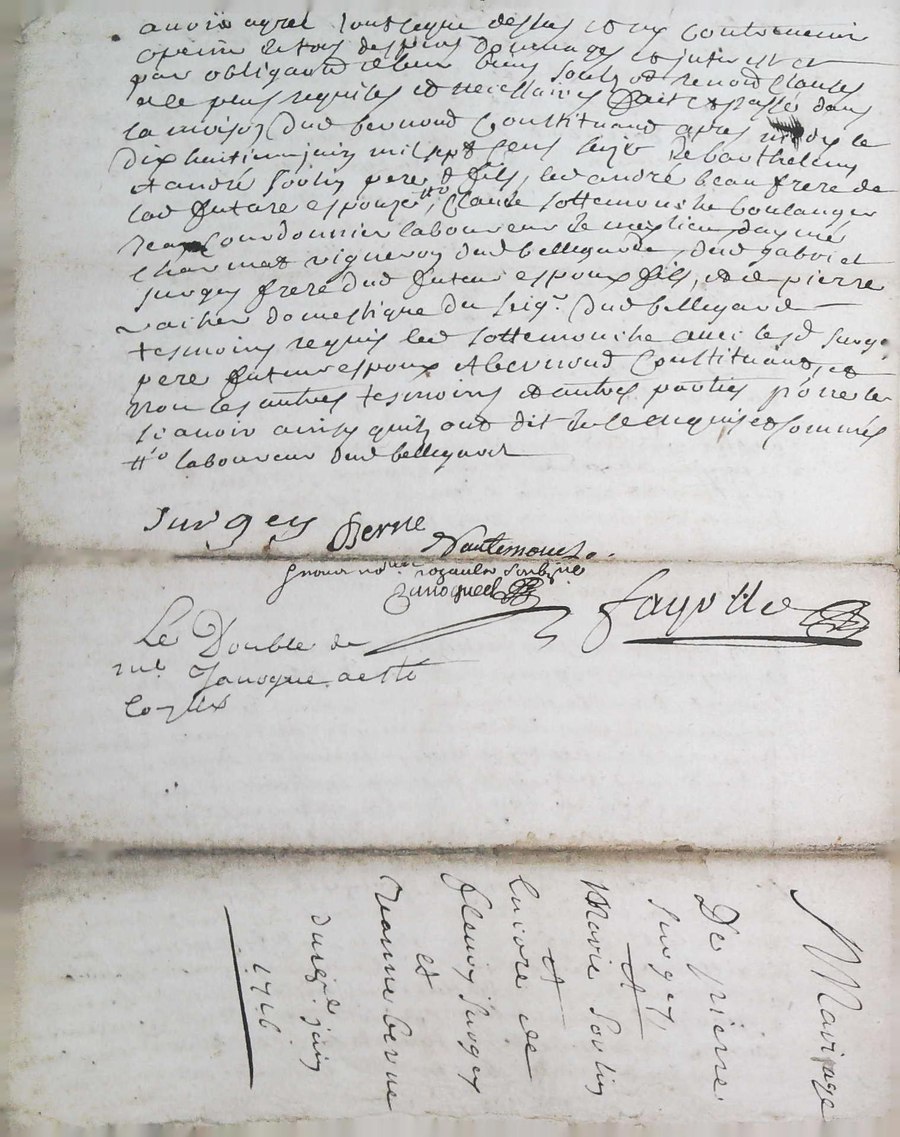 avoir agreé tout ce que dessus et ny contrevenir
a peine de tous despens domages et interest et
par obligaõn de leur biens soubz et renonõn clauses
a le plus requises et necessaires fait et passé dans
la maison dud bernond Constituant apres midy le
dix huit juin mil sept cens de barthelemy
et andré Soulin pere et fils, led andré beau frere de
lad future espouze, Claude sottemouche boulanger
Jean Courdonnier laboureur de aymé
Charmat vigneron dud bellegarde, dud gabriel
Surgey frere dud futeur espoux fils, et de pierre
vacher domestique du seigr. dud bellegarde
tesmoins requis led sottemouche avec lesd Surgey
pere futeur espoux et bernond Constituant, et
non les autres tesmoins et autres parties pour ne le
scavoir ainsy quilz ont dit de ce enquis et sommés
tto laboureur dud bellegarde
Surgey Berne
Sautemouche
Janoque
fayolle
Le Double de
Janoque a esté
Mariage
De pierre
Surget
et
Marie Soulin
Encore de
et
fleury Surgey
et
Jeanne berne
du 18e juin
1746